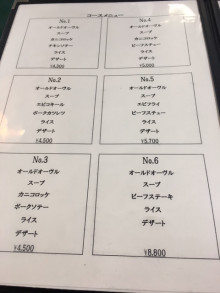 コースメニュー
No.1
オールドオーヴル
スープ
カニコロッケ
チキンソテー
ライス
デザート
No.4
オールドオーヴル
スープ
ビーフシチュー
ライス
デザート
No.2
オールドオーヴル
スープ
エビコキール
ポークカツレツ
ライス
デザート
¥4,500
No.5
オールドオーヴル
スープ
エビフライ
ビーフシチュー
ライス
デザート
¥5,700
No.3
オールドオーヴル
スープ
カニコロッケ
ポークソテー
ライス
デザート
¥4,500
No.6
オールドオーヴル
スープ
ビーフステーキ
ライス
デザート
¥8,800